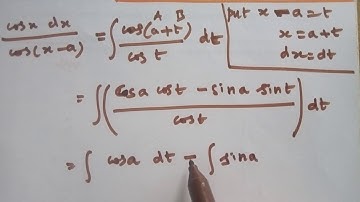 cosx dx / cos(x-a) = ∫ cos(a+t) / cos t dt
A B
put x - a = t
x = a+t
dx = dt
= ∫ ( cosa cost - sina sint / cost ) dt
= ∫ cosa dt - ∫ sina